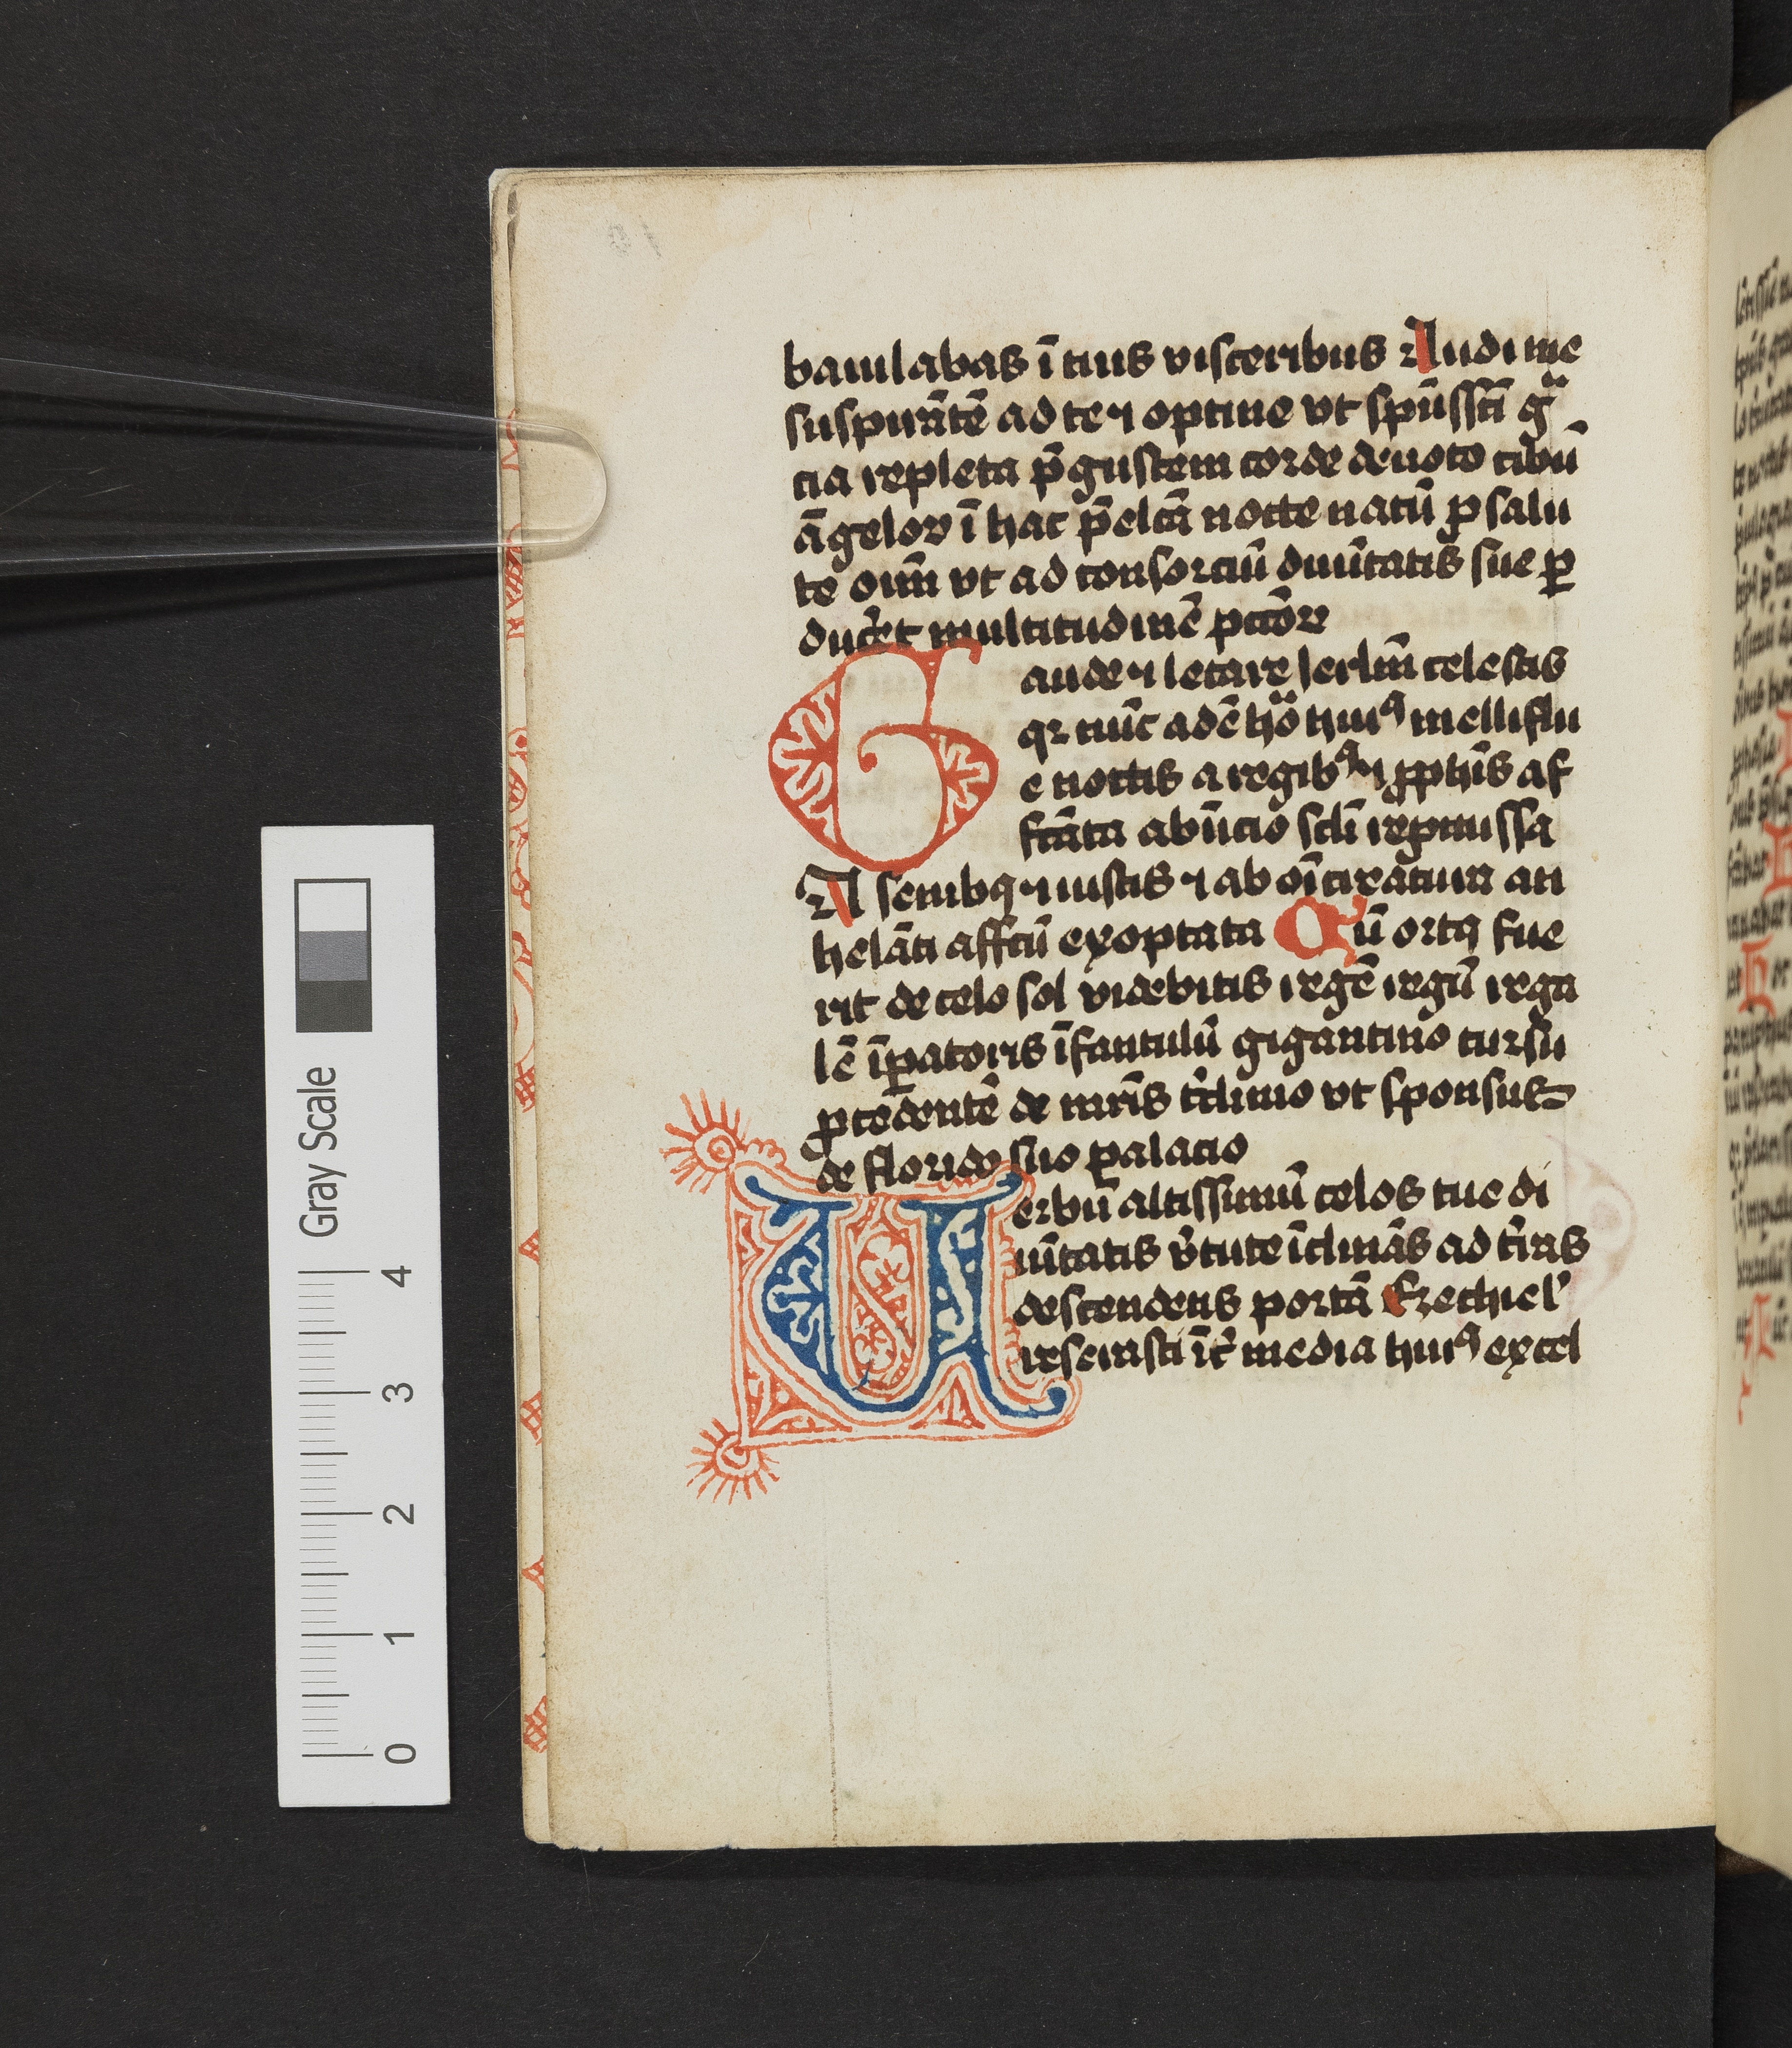 baiulabas ī tuis visceribus Audi me
suspirātē ad te ⁊ optine vt spūssctī grͣ
cia repleta p̄gustem corde deuoto cibū
āgeloꝝ ī hac p̄elctā nocte natū ꝓ salu
te oim̄ vt ad consorciū diuītatis sue ꝑ
ducēt multitudinē pctōꝝ
Gaude ⁊ letare ierlm̄ celestis
qꝛ nūc adē hō huiꝰ melliflu
e noctis a regibꝰ ⁊ ꝓphīs af
fctāta ab inicio sclī repmissa
A senibꝫ ⁊ iustis ⁊ ab oī creātura an
helāti affctū exoptata Cū ortꝰ fue
rit de celo sol videbitis regē regū rega
lē īꝑatoris īfantulū gigantino cursu
ꝓcedentē de mr̄is t̄clinio vt sponsus
de florido suo palacio
Uerbū altissimū celos tue di
uītatis v̄tute īclinās ad t̄ras
descendens portā Ezechiel̛
reserasti īt̄ media huiꝰ excel
Gray Scale
4
3
2
1
0